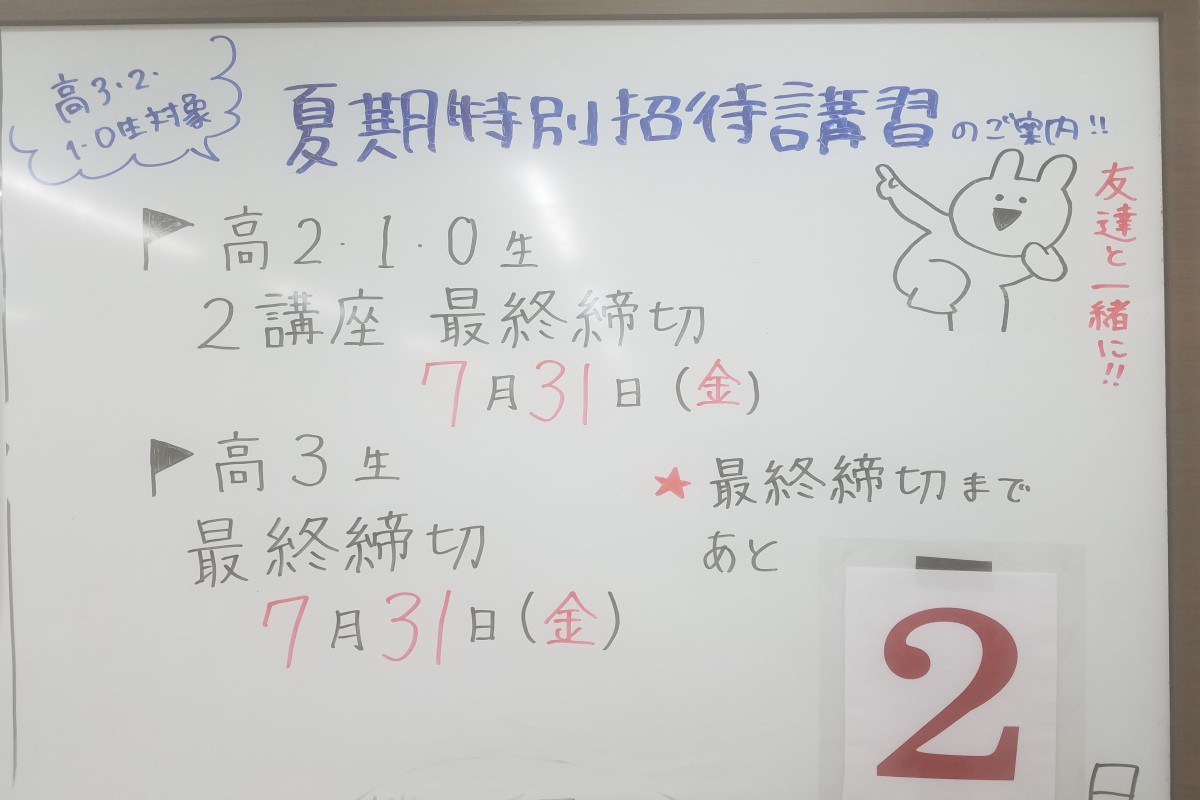 高3・2・
1・0生対象
夏期特別招待講習のご案内!!
友達と一緒に!!
高2・1・0生
2講座 最終締切
7月31日(金)
高3生
最終締切
7月31日(金)
★最終締切まで
あと
2
日